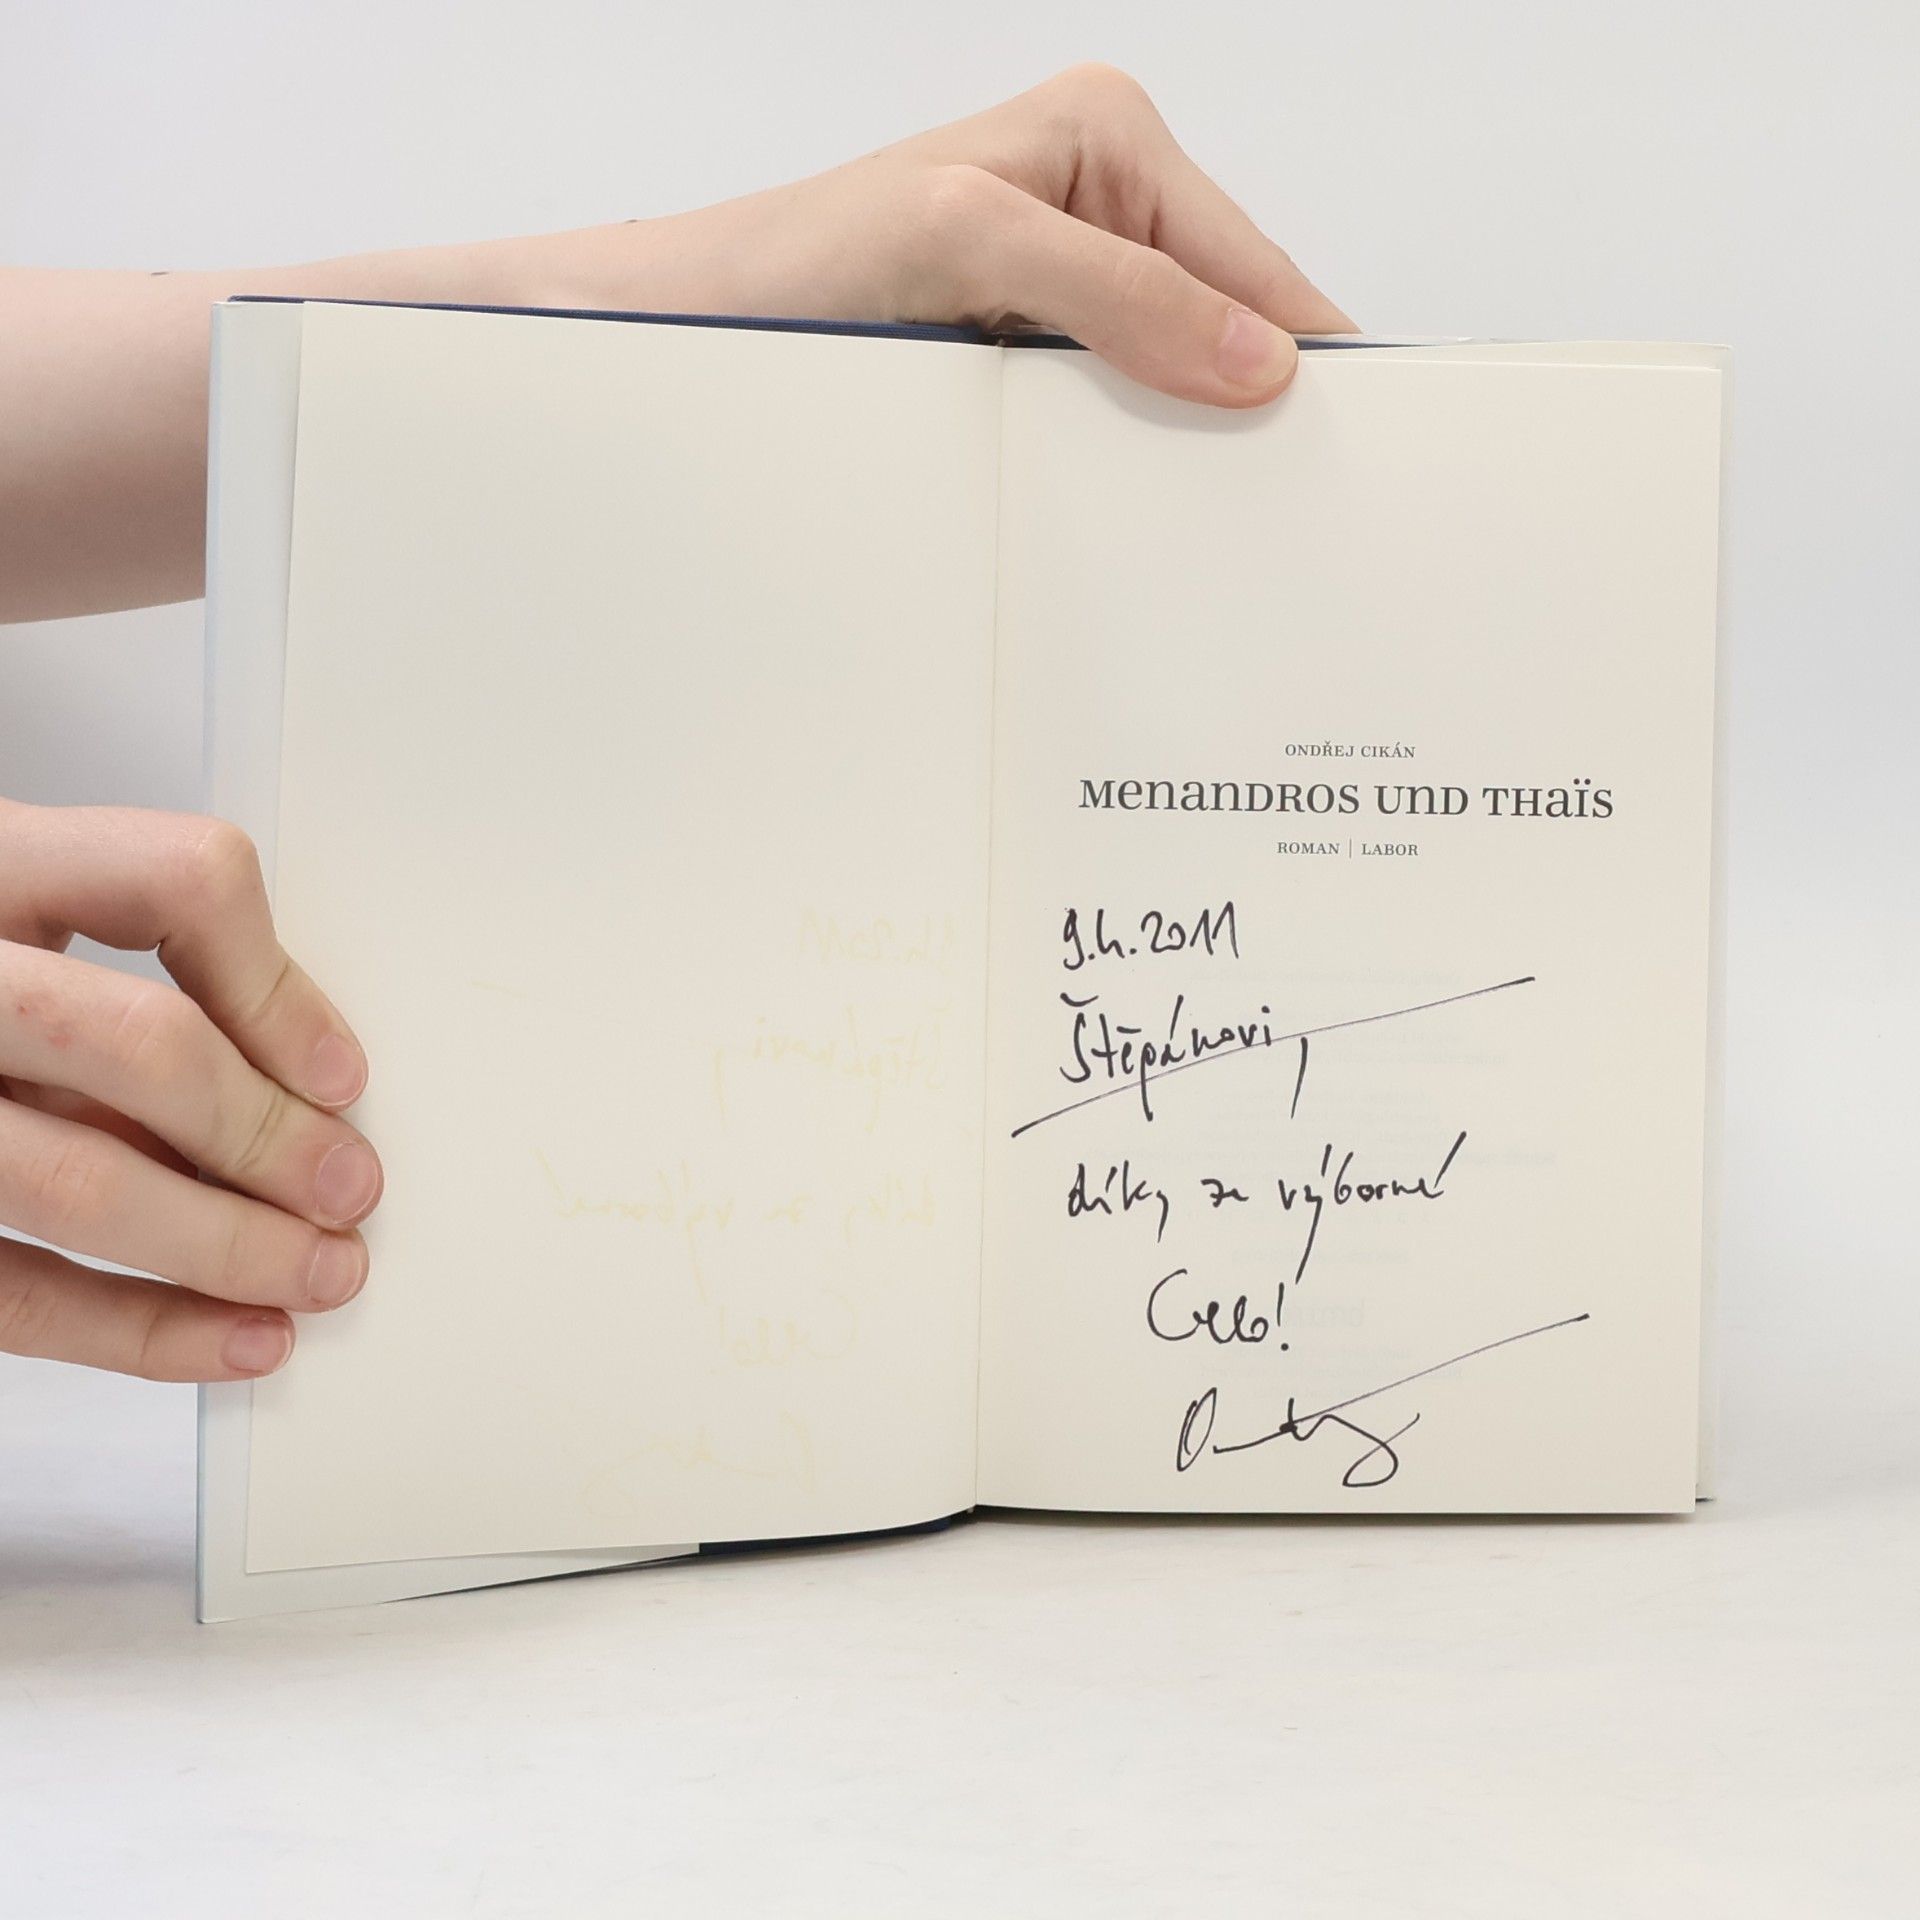 ONDŘEJ CIKÁN
Menandros und Thaïs
ROMAN | LABOR
9.4.2011
Štěpánovi,
díky za výborné
Cello!